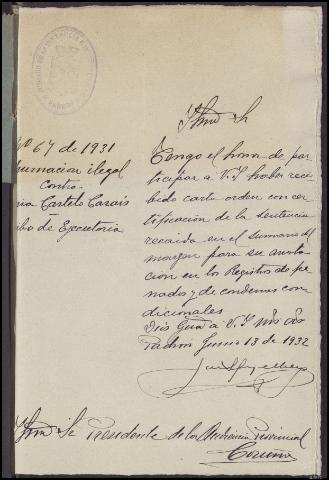 Nº 67 de 1931
humacion ilegal
Contra
ria Castelo Carais
ibo de Ejecutoria
Iltmo Sr
Tengo el honor de par-
ticipar a V.I. haber reci-
bido carta orden con cer-
tificación de la sentencia
recaida en el sumario del
margen para su anota-
cion en los Registros de pe-
nados y de condenas con-
dicionales
Dios Gue a V.I. ms as
Padron Junio 13 de 1932
Iltmo Sr Presidente de la Audiencia Provincial
Coruña